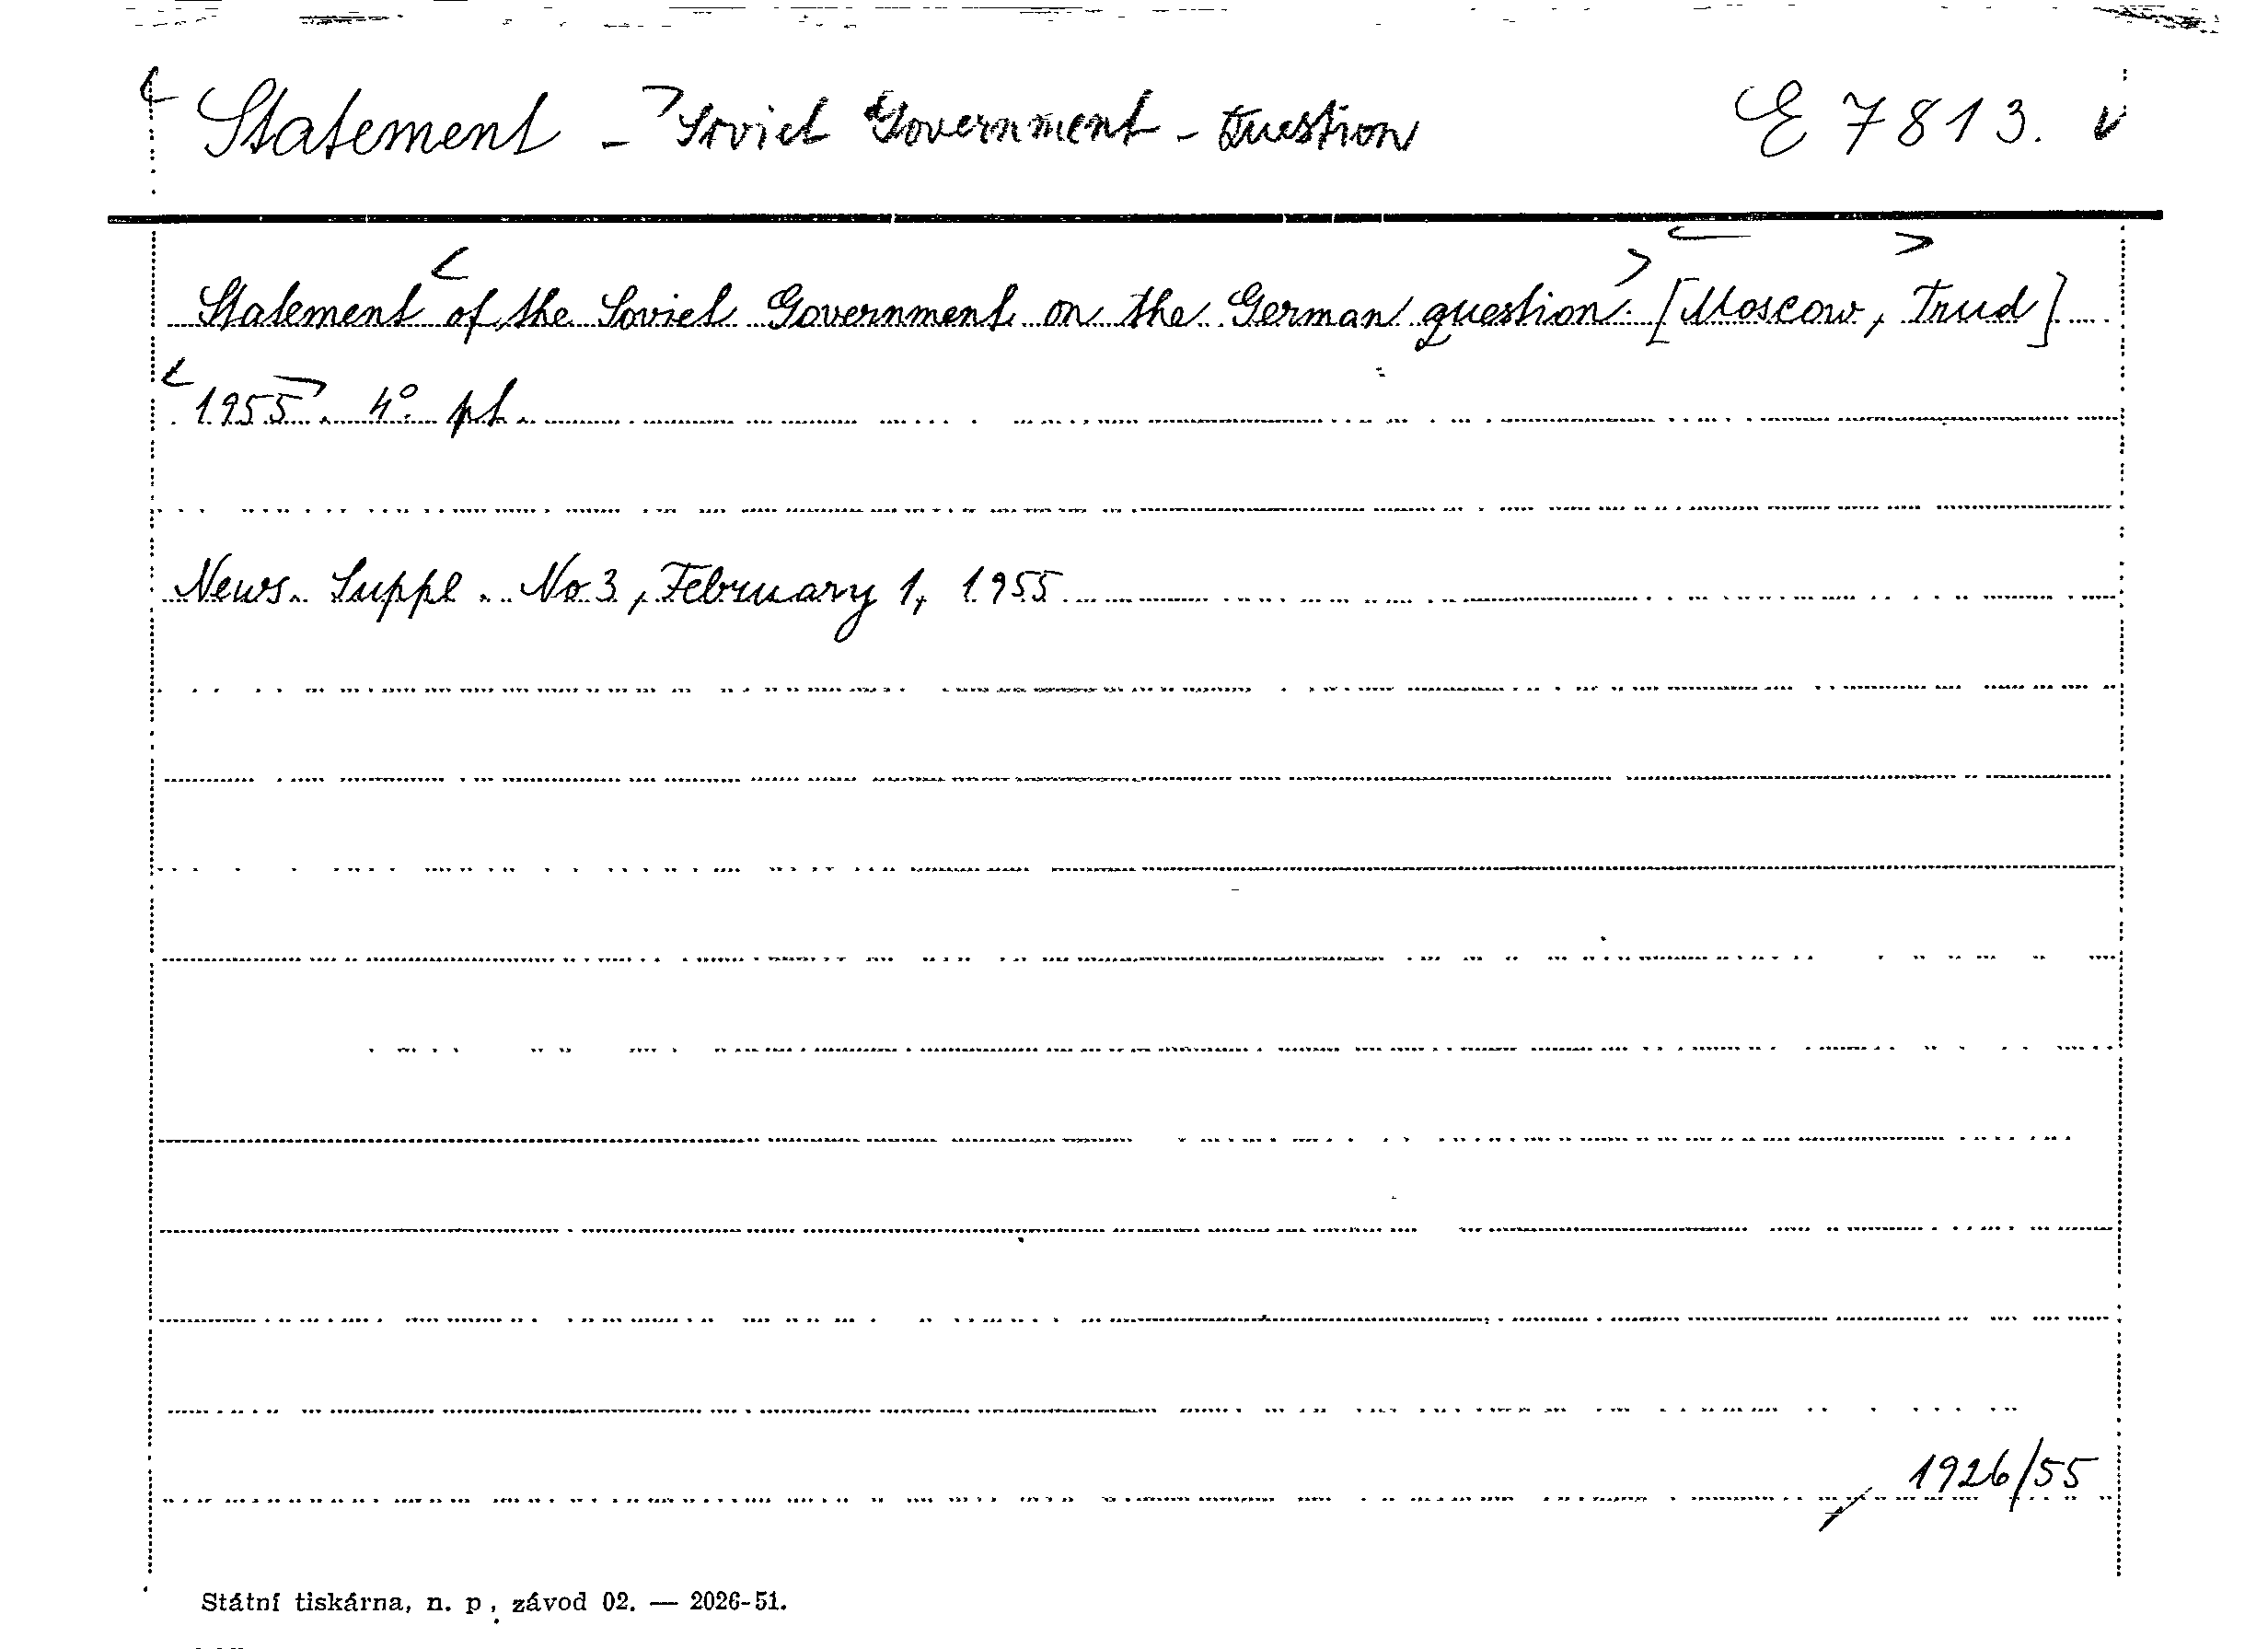 Statement - Soviet Government - Question E 7813.
Statement of the Soviet Government on the German question. [Moscow, Trud]
1955. 4° pt.
News. Suppl. No 3, February 1, 1955
1926/55
Státní tiskárna, n. p., závod 02. — 2026-51.